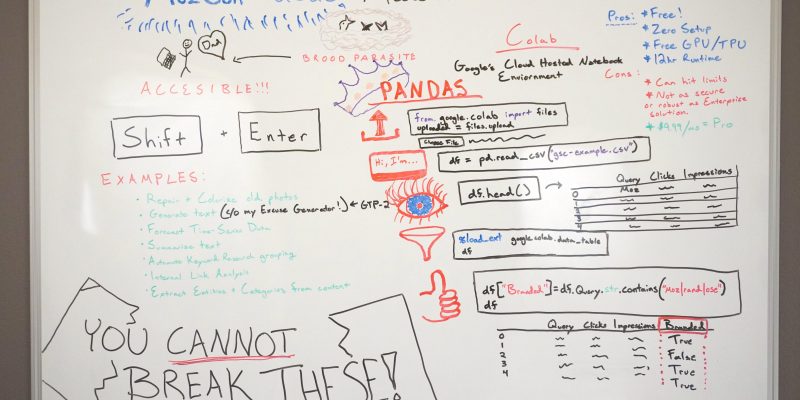 Dad
BROOD PARASITE
ACCESIBLE!!!
Shift + Enter
EXAMPLES:
• Repair + Colorize old photos
• Generate text (c/o my Excuse Generator!) ← GTP-2
• Forecast Time-Series Data
• Summarize text
• Automate Keyword Research grouping
• Internal Link Analysis
• Extract Entities + Categories from content
YOU CANNOT
BREAK THESE!
Colab
Google's Cloud Hosted Notebook
Enviornment
PANDAS
from google.colab import files
uploaded = files.upload
Choose File
Hi, I'm...
df = pd.read_csv("gsc-example.csv")
df.head()
Query Clicks Impressions
0 Moz
1
2
3
4
%load_ext google.colab.data_table
df
df["Branded"]=df.Query.str.contains("Moz|rand|ose")
df
Query Clicks Impressions Branded
0 True
1 False
2 True
3 True
4
Pros:
* Free!
* Zero Setup
* Free GPU/TPU
* 12hr Runtime
Cons:
* Can hit limits
* Not as secure
or robust as Enterprise
solution.
* $9.99/mo = Pro